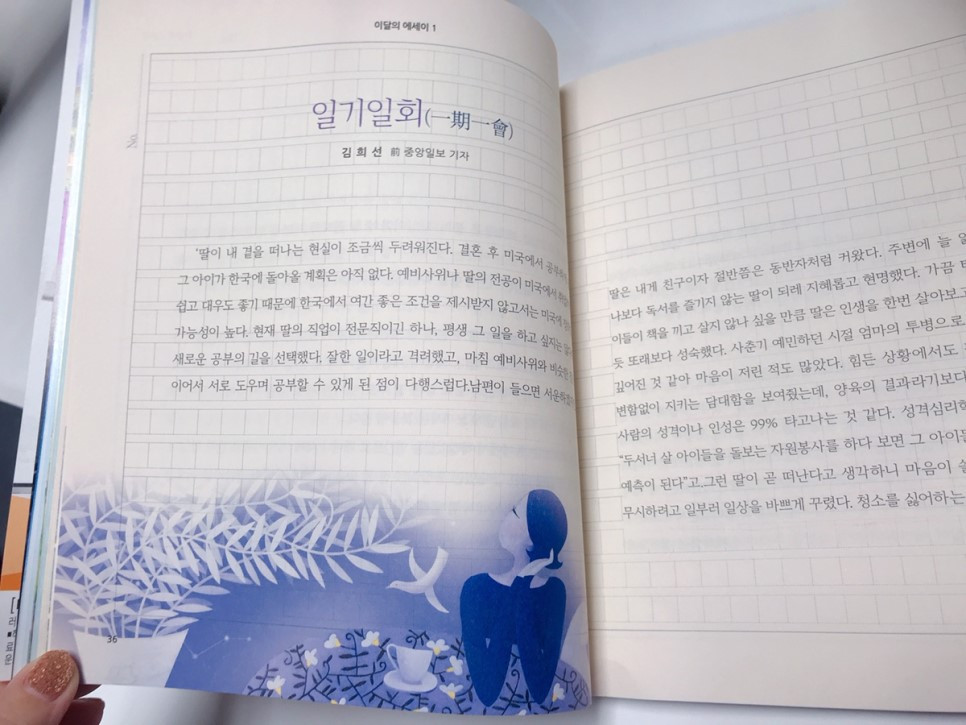 이달의 에세이 1
일기일회(一期一會)
김 희 선 前 중앙일보 기자
No.
'딸이 내 곁을 떠나는 현실이 조금씩 두려워진다. 결혼 후 미국에서
그 아이가 한국에 돌아올 계획은 아직 없다. 예비사위나 딸의 전공이 미국에서
쉽고 대우도 좋기 때문에 한국에서 여간 좋은 조건을 제시받지 않고서는 미국에
가능성이 높다. 현재 딸의 직업이 전문직이긴 하나, 평생 그 일을 하고 싶지는
새로운 공부의 길을 선택했다. 잘한 일이라고 격려했고, 마침 예비사위와 비슷한
이어서 서로 도우며 공부할 수 있게 된 점이 다행스럽다.남편이 들으면
36
딸은 내게 친구이자 절반쯤은 동반자처럼 커왔다. 주변에 늘
나보다 독서를 즐기지 않는 딸이 되레 지혜롭고 현명했다. 가끔
이들이 책을 끼고 살지 않나 싶을 만큼 딸은 인생을 한번 살아보고
듯 또래보다 성숙했다. 사춘기 예민하던 시절 엄마의 투병으로
깊어진 것 같아 마음이 저린 적도 많았다. 힘든 상황에서도
변함없이 지키는 담대함을 보여줬는데, 양육의 결과라기보다
사람의 성격이나 인성은 99% 타고나는 것 같다. 성격심리학
"두서너 살 아이들을 돌보는 자원봉사를 하다 보면 그 아이들
예측이 된다"고.그런 딸이 곧 떠난다고 생각하니 마음이
무시하려고 일부러 일상을 바쁘게 꾸렸다. 청소를 싫어하는